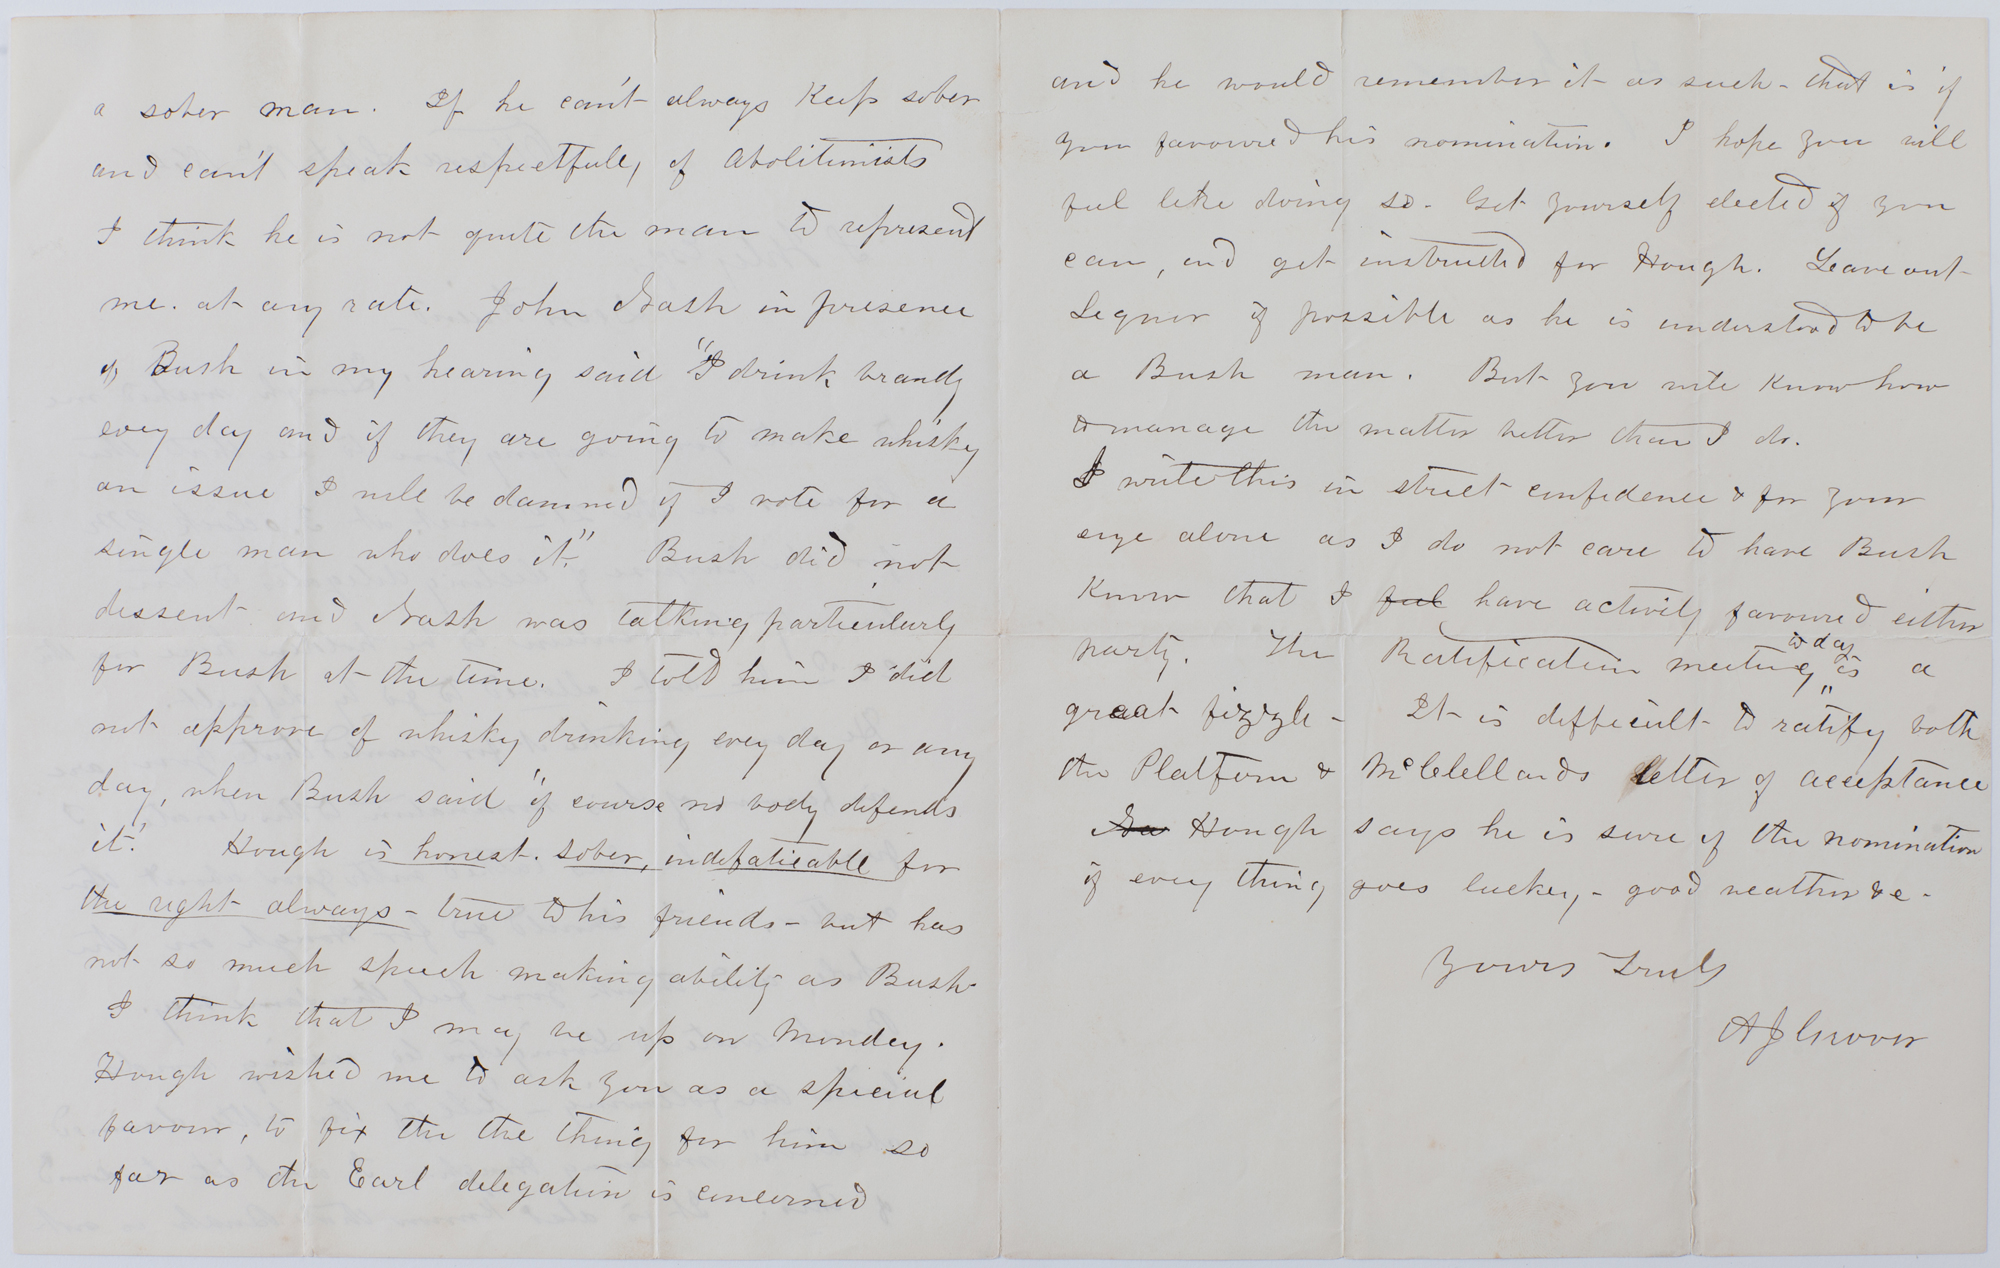 a sober man. If he can't always Keep sober
and can't speak respectfully of Abolitionists
I think he is not quite the man to represent
me. at any rate. John Nash in presence
of Bush in my hearing said "I drink brandy
every day and if they are going to make whisky
an issue I will be damned if I vote for a
single man who does it." Bush did not
dissent and Nash was talking particularly
for Bush at the time. I told him I did
not approve of whisky drinking every day or any
day, when Bush said "of course no body defends
it." Hough is honest. sober, indefaticable for
the right always - true to his friends - but has
not so much speech making ability as Bush.
I think that I may be up on Monday.
Hough wished me to ask you as a special
favour, to fix the the thing for him so
far as the Earl delegation is concerned
and he would remember it as such - that is if
you favoured his nomination. I hope you will
feel like doing so. Get yourself elected if you
can, and get instructed for Hough. Leave out
Legner if possible as he is understood to be
a Bush man. But you will Know how
to manage the matter better than I do.
I write this in strict confidence & for your
eye alone as I do not care to have Bush
Know that I feel have actively favoured either
party. The Ratification meeting to day is a
great fizzle - It is difficult to ratify both
the Platform & McClellands letter of acceptance
Hough says he is sure of the nomination
if every thing goes luckey - good weather &c -
Yours Truly
A J Grover